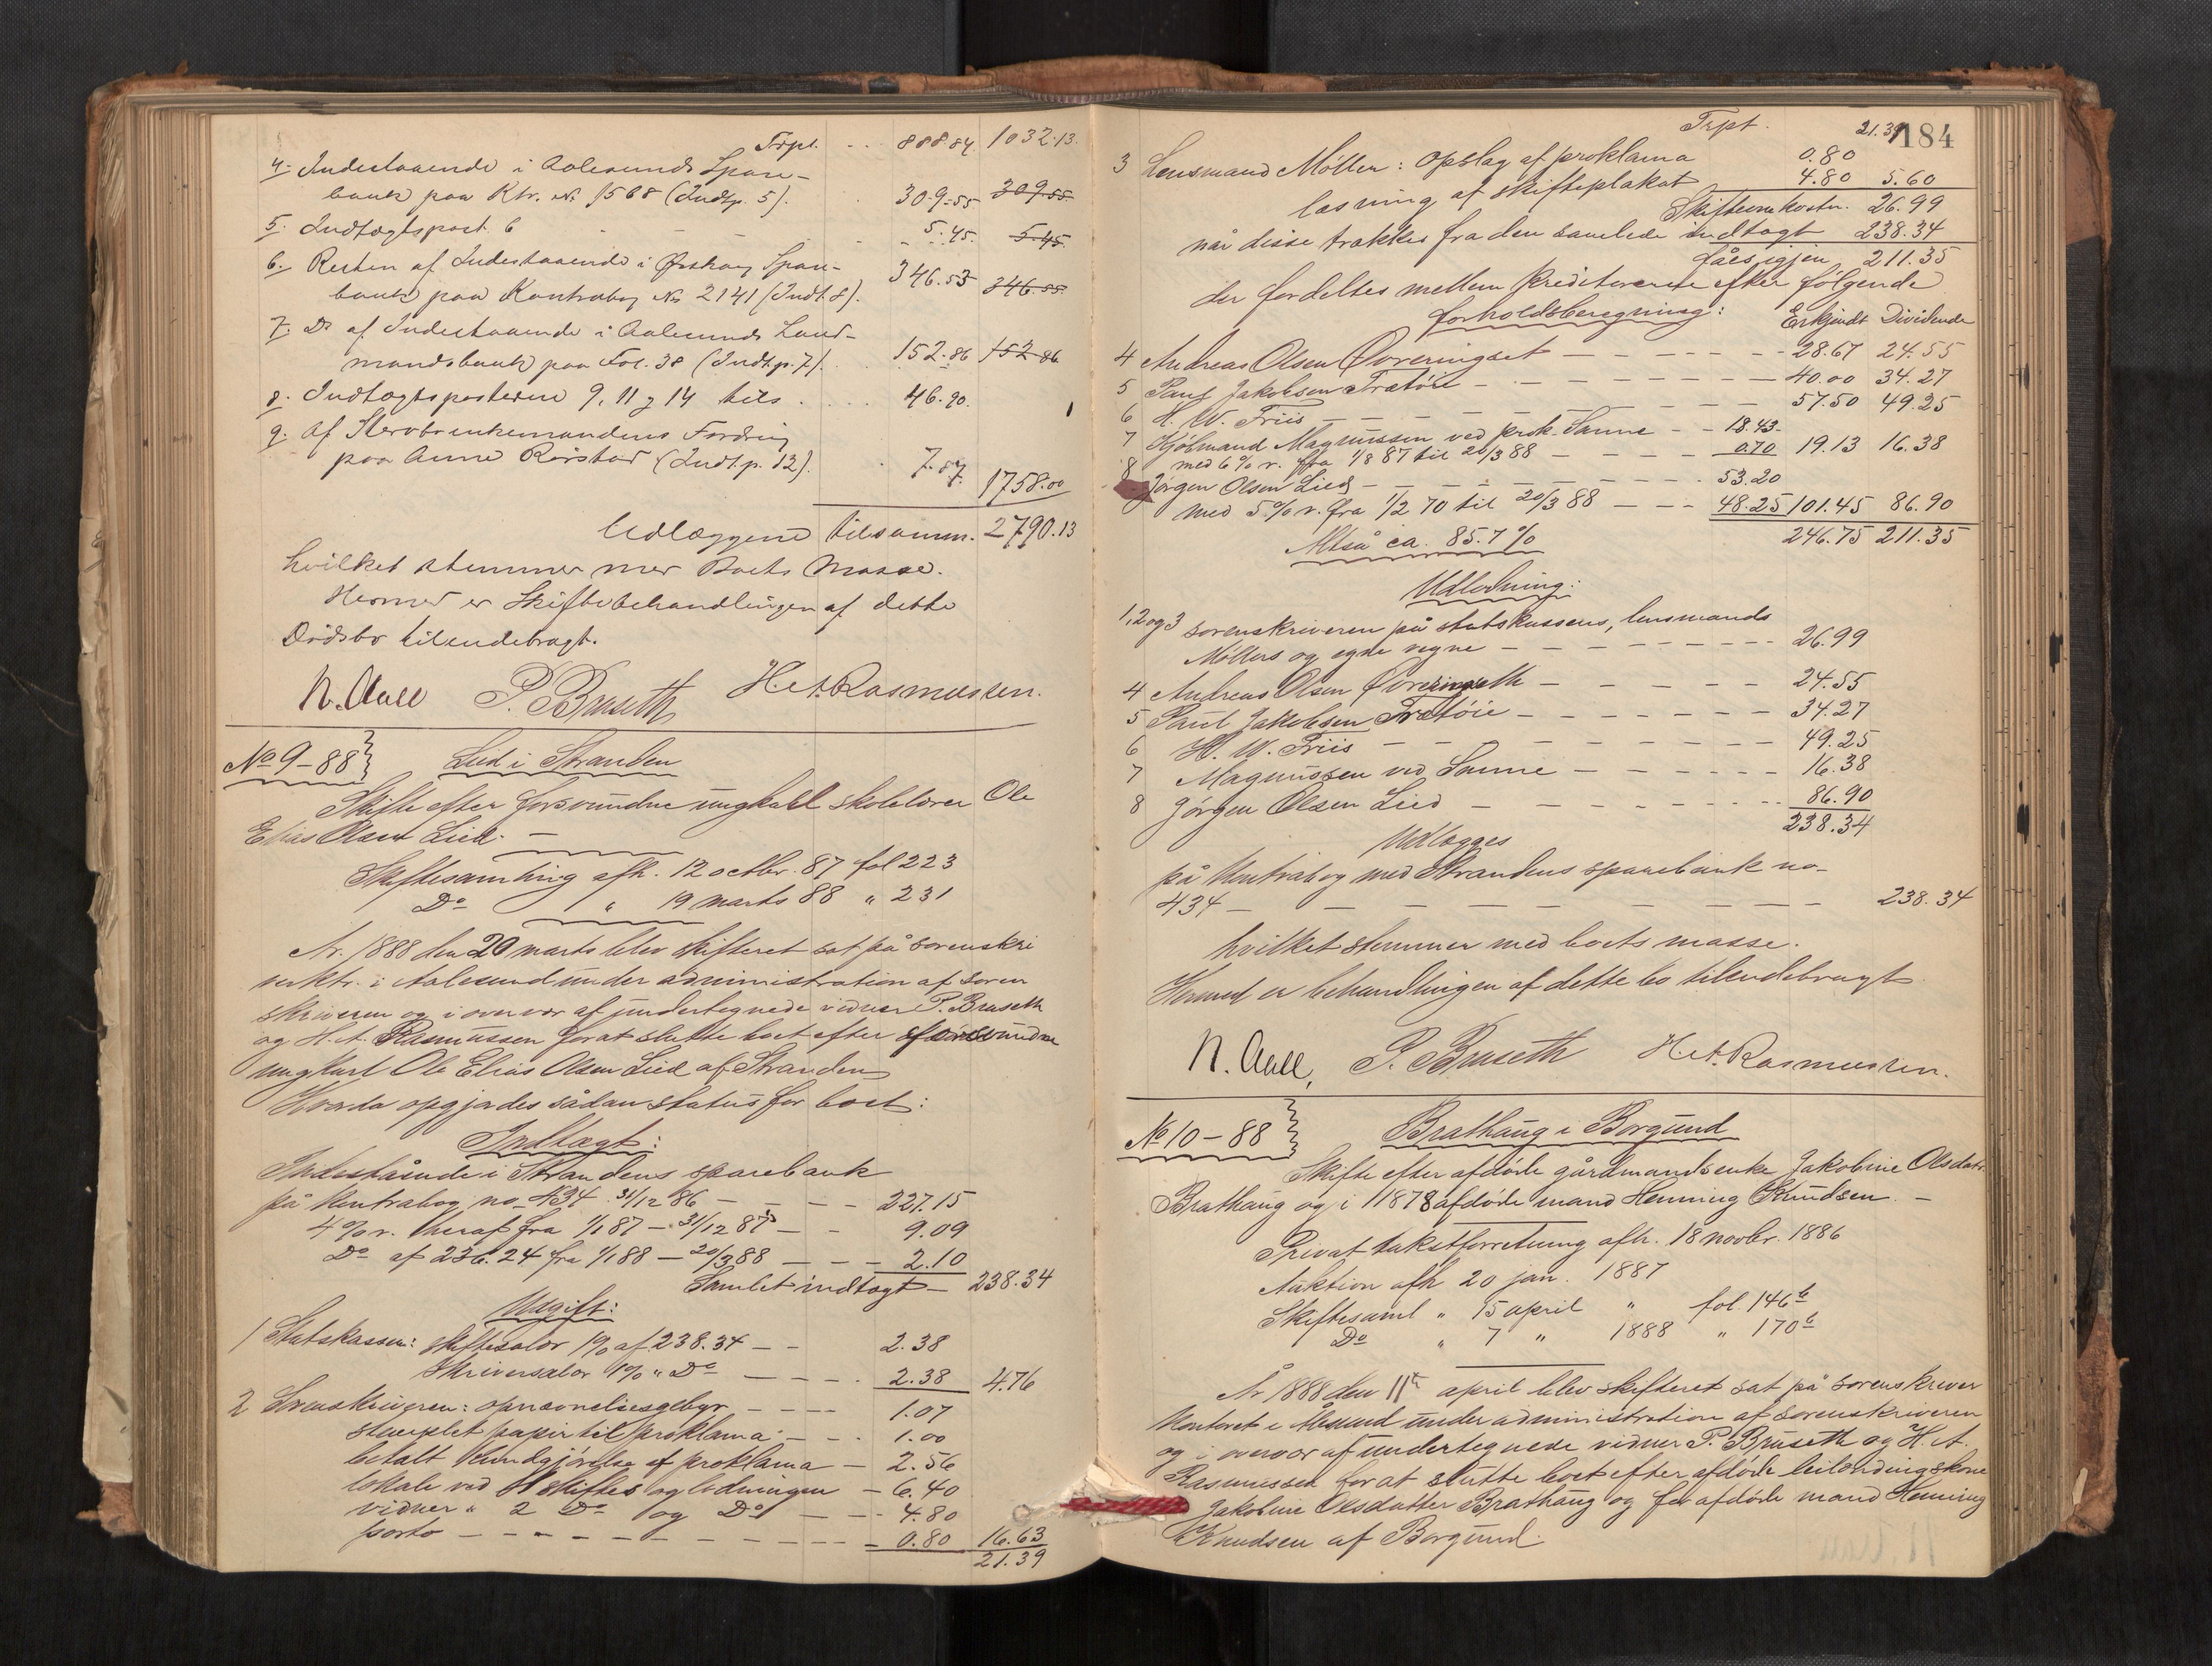 Trpt. 888.84 1032.13
4. Indestaaende i Aalesunds Spare-
bank paa Ktr. No 1568 (Indtp. 5). 309.55 309.55
5. Indtægtspost 6 5.45. 5.45
6. Resten af Indestaaende i Ørskog Spare-
bank paa Kontrabog No 2141 (Indt. 8). 346.53 346.55
7. Do af Indestaaende i Aalesunds Land-
mandsbank paa Fol. 38 (Indtp. 7). 152.86 152.86
8. Indtægtsposterne 9, 11 og 14 tils. 46.90.
9. Af Stervboenkemandens Fordring
paa Anne Rørstad (Indt.p. 12). 7.87. 1758.00
Udlæggene tilsamm. 2790.13
hvilket stemmer med Boets Masse.
Hermed er Skiftebehandlingen af dette
Dødsbo tilendebragt.
N. Aall P. Bruseth H. A. Rasmussen.
No 9-88 Lied i Stranden
Skifte efter forsvundne ungkarl skolelærer Ole
Elias Olsen Lied.
Skiftesamling afh. 12 octbr. 87 fol 223
Do " 19 marts 88 " 231
År 1888 den 20 marts blev skifteret sat på sorenskri
verktr. i Aalesund under administration af soren
skriveren og i overvær af undertegnede vidner P. Bruseth
og H. A. Rasmussen for at slutte boet efter forsvundne
ungkarl Ole Elias Olsen Lied af Stranden
Hvorda opgjordes sådan status for boet:
Indtægt:
Indestående i Strandens sparebank
på kontrabog no 434 31/12 86 227.15
4% r. heraf fra 1/1 87 - 31/12 87 9.09
Do af 236.24 fra 1/1 88 - 20/3 88 2.10
Samlet indtægt 238.34
Udgift:
1 Statskassen: skiftesalær 1% af 238.34 2.38
Skriversalær 1% " Do 2.38 4.76
2 Sorenskriveren: opnævnelsesgebyr 1.07
stemplet papir til proklama 1.00
betalt kundgjørelse af proklama 2.56
lokale ved skiftes og lodningen 6.40
vidner " 2 Do og Do 4.80
porto 0.80 16.63
21.39
184
Trpt. 21.39
3 Lensmand Møller: opslag af proklama 0.80
læsning af skifteplakat 4.80 5.60
Skifteomkostn. 26.99
når disse trækkes fra den samlede indtægt 238.34
fåes igjen 211.35
der fordeltes mellem kreditorerne efter følgende
forholdsberegning: Erkjendt Dividende
4 Andreas Olsen Overingset 28.67 24.55
5 Paul Jakobsen Trætøie 40.00 34.27
6 H. W. Friis 57.50 49.25
7 Kjøbmand Magnussen ved prok. Sanne 18.43
med 6% r. fra 1/8 87 til 20/3 88 0.70 19.13 16.38
8 Jørgen Olsen Lied 53.20
med 5% r. fra 1/2 70 til 20/3 88 48.25 101.45 86.90
Altså ca. 85.7% 246.75 211.35
Udlodning:
1, 2 og 3 sorenskriveren på statskassens, lensmands
Møllers og egne vegne 26.99
4 Andreas Olsen Overingseth 24.55
5 Paul Jakobsen Trætøie 34.27
6 H. W. Friis 49.25
7 Magnussen ved Sanne 16.38
8 Jørgen Olsen Lied 86.90
238.34
Udlægges
på kontrabog med Strandens sparebank no
434 238.34
hvilket stemmer med boets masse.
Hermed er behandlingen af dette bo tilendebragt
N. Aall, P. Bruseth H. A. Rasmussen.
No 10-88 Brathaug i Borgund
Skifte efter afdøde gårdmandsenke Jakobine Olsdatr.
Brathaug og i 1878 afdøde mand Henning Knudsen.
Privat takstforretning afh. 18 novbr. 1886
Auktion afh 20 jan. 1887
Skiftesaml " 15 april " fol. 146b
Do " 7 " 1888 " 170b
År 1888 den 11te april blev skifteret sat på sorenskriver
kontoret i Ålesund under administration af sorenskriveren
og i overvær af undertegnede vidner P. Bruseth og H. A.
Rasmussen for at slutte boet efter afdøde leilændingskone
Jakobine Olsdatter Brathaug og før afdøde mand Henning
Knudsen af Borgund.